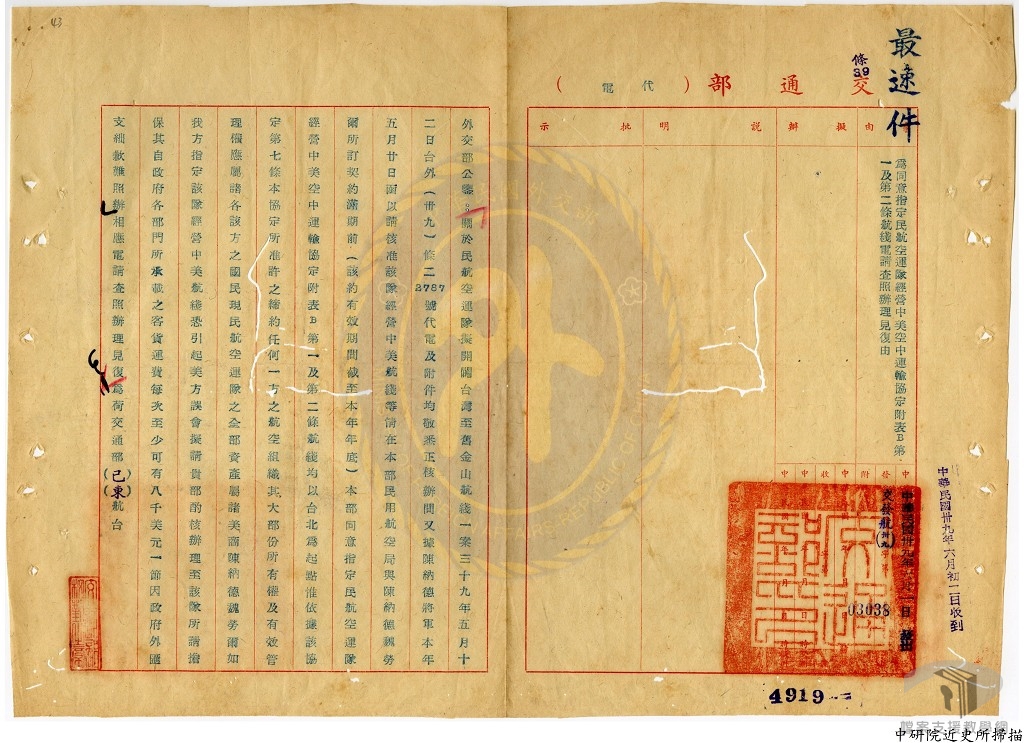 43
最速件
條39
交通部（代電）
由
擬辦
說明
批示
為同意指定民航空運隊經營中美空中運輸協定附表B第
一及第二條航綫電請查照辦理見復由
中華民國卅九年六月初二日收到
交發航(卅九)
03038
4919
外交部公鑒：關於民航空運隊擬開闢台灣至舊金山航綫一案三十九年五月十
二日台外（卅九）條二3787號代電及附件均敬悉正核辦間又據陳納德將軍本年
五月廿日函以請核准該隊經營中美航綫等請在本部民用航空局與陳納德魏勞
爾所訂契約滿期前（該約有效期間截至本年年底）本部同意指定民航空運隊
經營中美空中運輸協定附表B第一及第二條航綫均以台北為起點惟依據該協
定第七條本協定所准許之締約任何一方之航空組織其大部份所有權及有效管
理權應屬諸各該方之國民現民航空運隊之全部資產屬諸美商陳納德魏勞爾如
我方指定該隊經營中美航綫恐引起美方誤會擬請貴部酌核辦理至該隊所請擔
保其自政府各部門所承載之客貨運費每次至少可有八千美元一節因政府外匯
支絀歉難照辦相應電請查照辦理見復為荷交通部（巳東）航台
中研院近史所掃描
檔案支援教學網